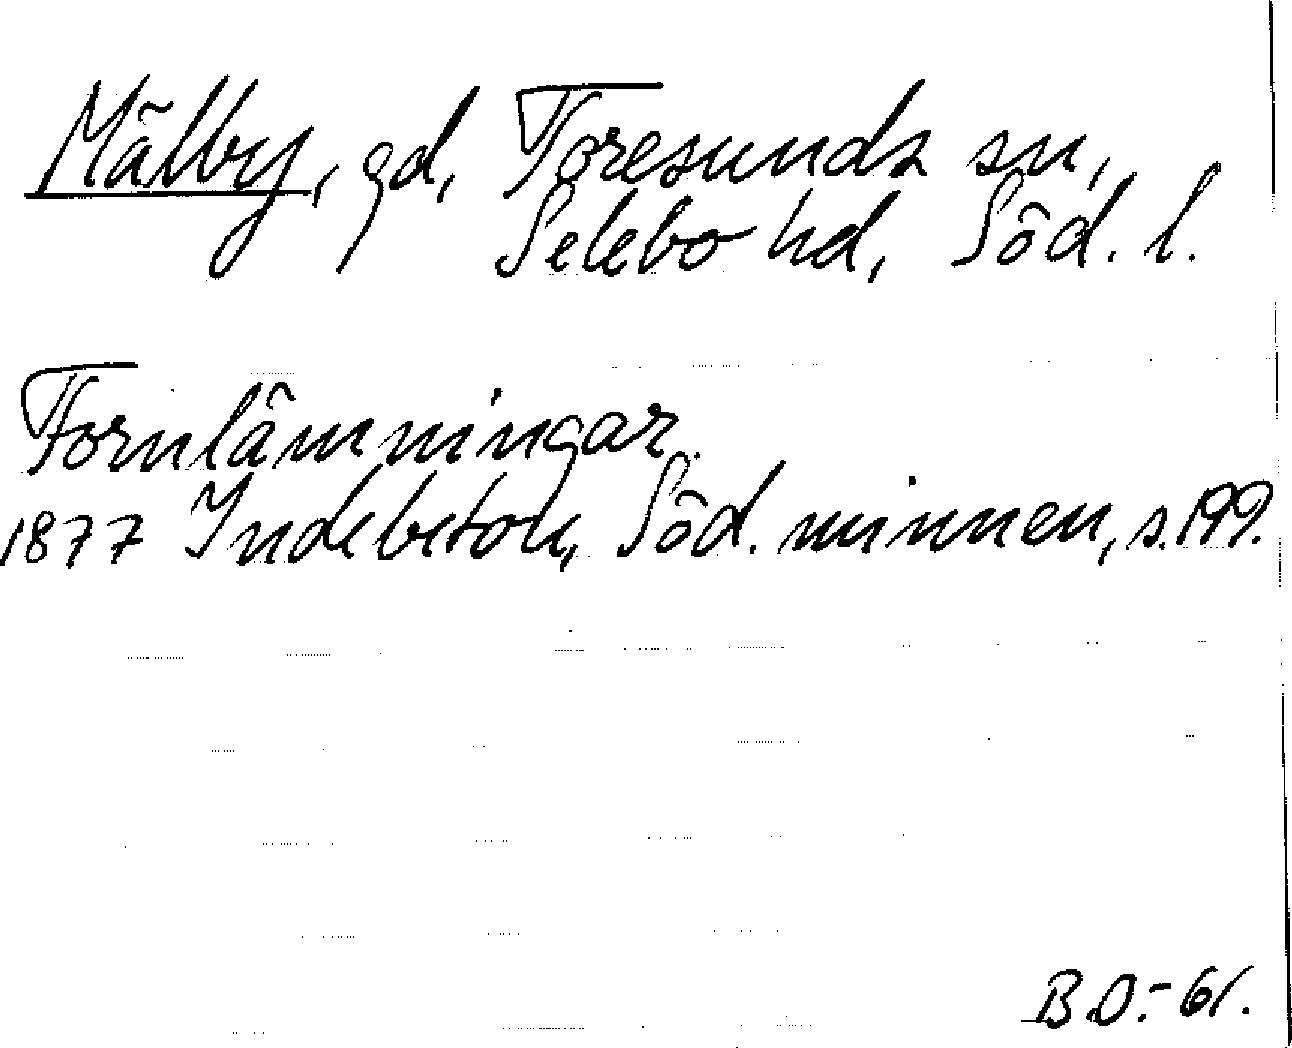 Mälby, gd, Toresunds sn,
Selebo hd, Söd. l.
Fornlämningar.
1877 Indebetou, Söd. minnen, s. 199.
B.D.-61.